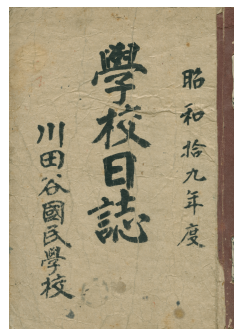 昭和拾九年度
學校日誌
川田谷國民學校